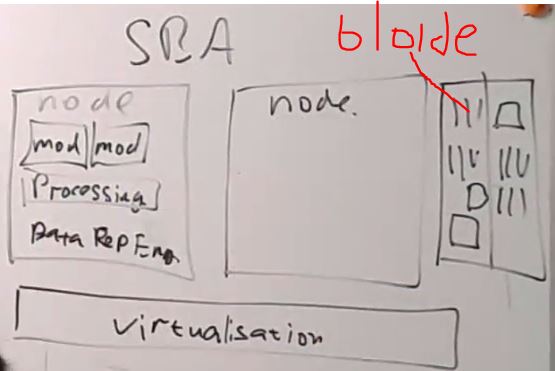 SBA
blade
node
node.
mod mod
Processing
Data Rep Eng
virtualisation